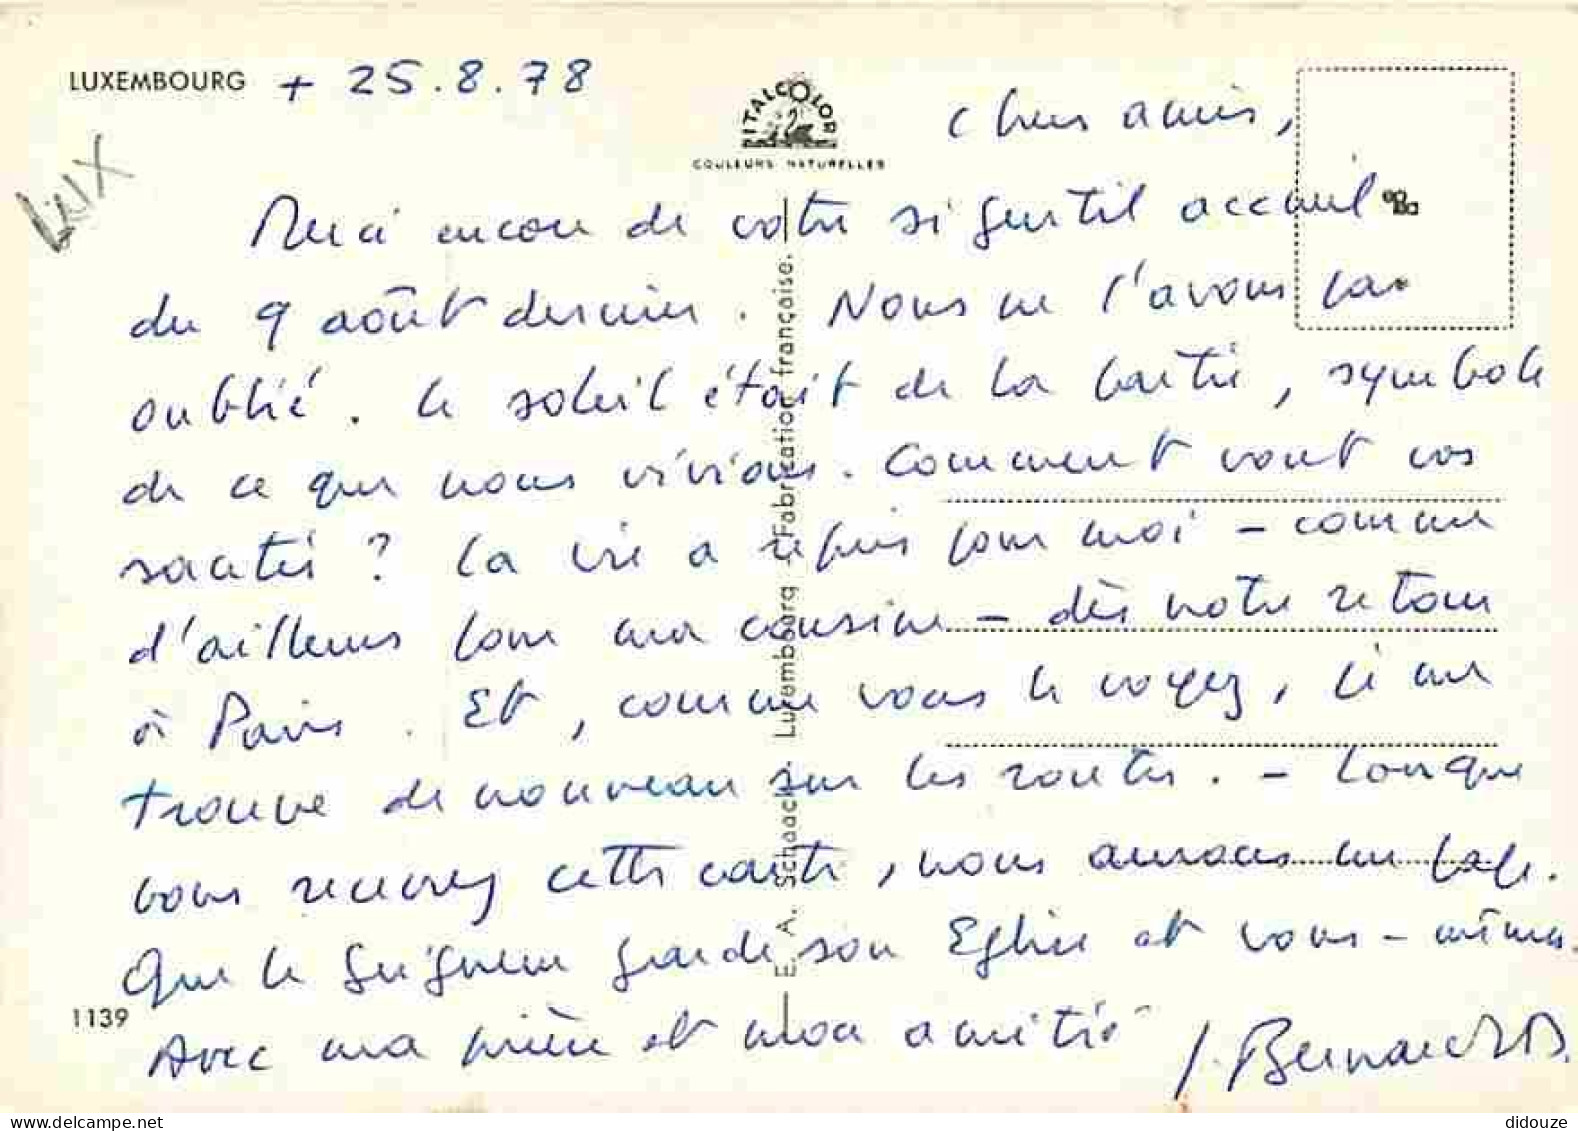 LUXEMBOURG + 25.8.78
ITALCOLOR
COULEURS NATURELLES
LUX
Chers amis,
Merci encore de votre si gentil accueil
du 9 août dernier. Nous ne l'avons pas
oublié. Le soleil était de la partie, symbole
de ce que nous vivions. Comment vont vos
santés ? La vie a repris pour moi - comme
d'ailleurs pour ma cousine - dès notre retour
à Paris. Et, comme vous le voyez, je me
trouve de nouveau sur les routes. - Lorsque
vous recevrez cette carte, nous aurons un pape.
Que le Seigneur garde son Eglise et vous-mêmes.
Avec ma prière et mon amitié
J. Bernard
E. A. Schaack - Luxembourg - Fabrication française.
1139
didouze